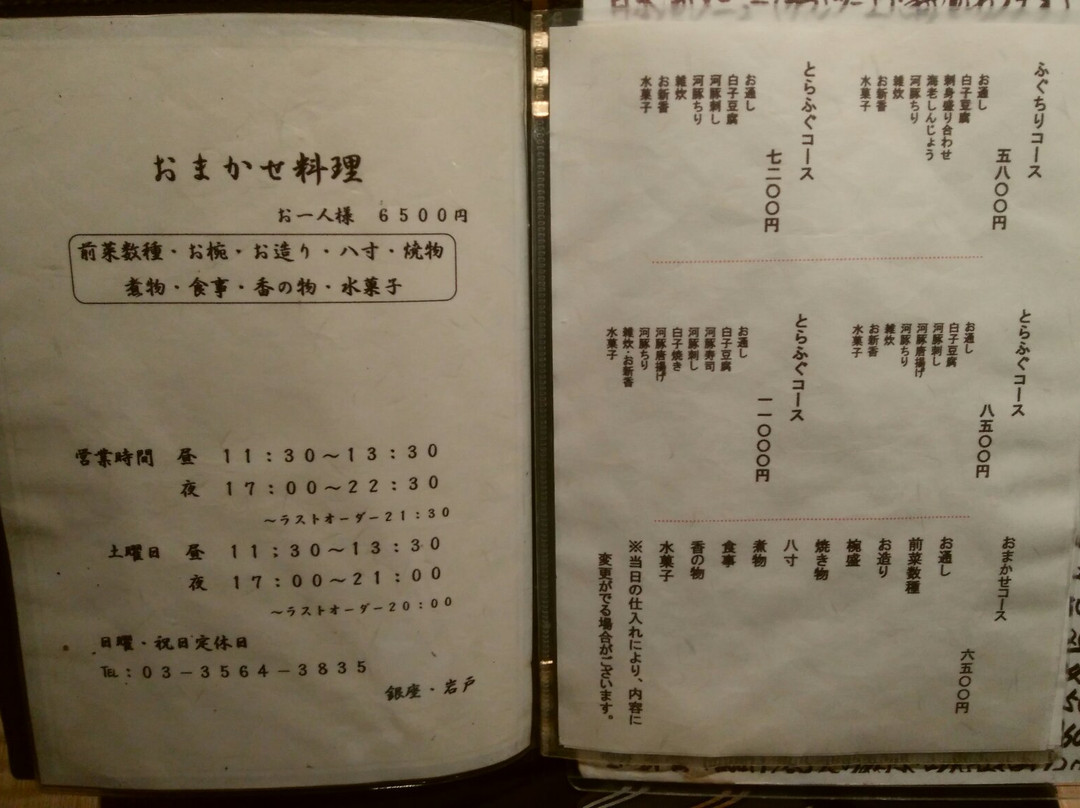 おまかせ料理
お一人様　６５００円
前菜数種・お椀・お造り・八寸・焼物
煮物・食事・香の物・水菓子
営業時間　昼　１１：３０～１３：３０
夜　１７：００～２２：３０
～ラストオーダー２１：３０
土曜日　昼　１１：３０～１３：３０
夜　１７：００～２１：００
～ラストオーダー２０：００
日曜・祝日定休日
℡：０３－３５６４－３８３５
銀座・岩戸
ふぐちりコース
五八〇〇円
お通し
白子豆腐
刺身盛り合わせ
海老しんじょう
河豚ちり
雑炊
お新香
水菓子
とらふぐコース
七二〇〇円
お通し
白子豆腐
河豚刺し
河豚ちり
雑炊
お新香
水菓子
とらふぐコース
八五〇〇円
お通し
白子豆腐
河豚刺し
河豚唐揚げ
河豚ちり
雑炊
お新香
水菓子
とらふぐコース
一一〇〇〇円
お通し
白子豆腐
河豚寿司
河豚刺し
白子焼き
河豚唐揚げ
河豚ちり
雑炊・お新香
水菓子
おまかせコース
六五〇〇円
お通し
前菜数種
お造り
椀盛
焼き物
八寸
煮物
食事
香の物
水菓子
※当日の仕入れにより、内容に
変更がでる場合がございます。